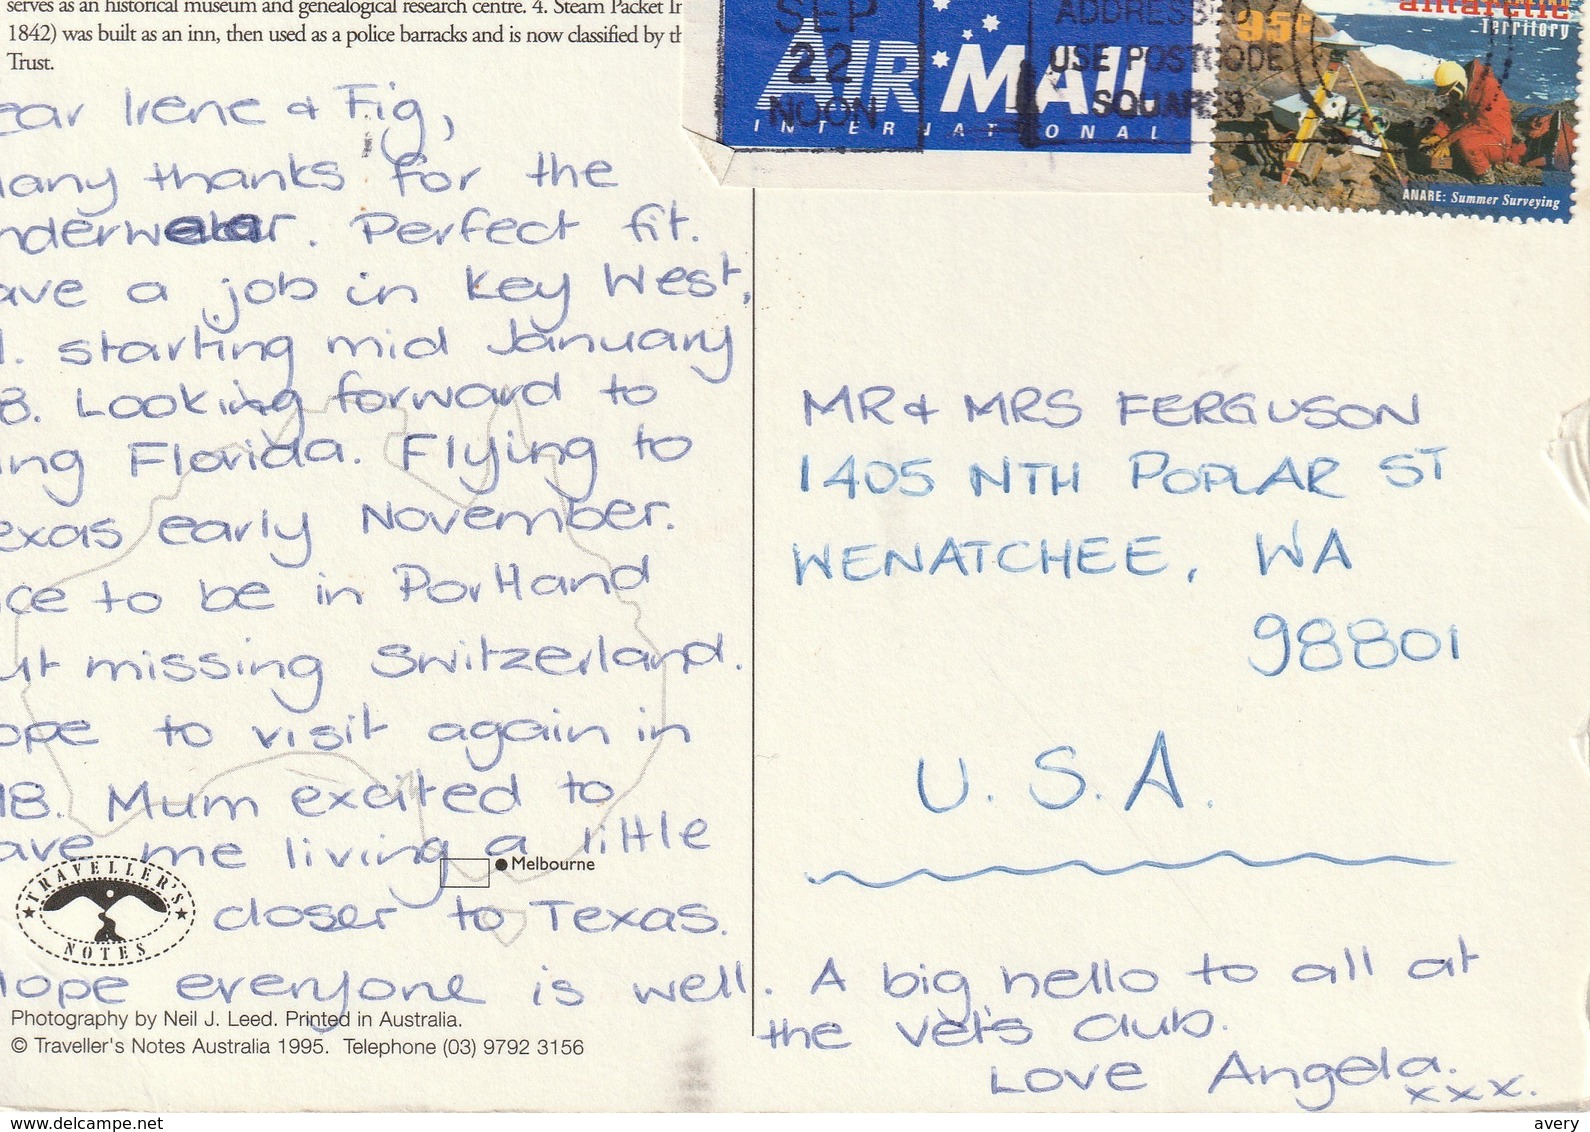 serves as an historical museum and genealogical research centre. 4. Steam Packet In
1842) was built as an inn, then used as a police barracks and is now classified by th
Trust.
ear Irene & Fig,
any thanks for the
nderwear. Perfect fit.
ave a job in Key West,
l. starting mid January
8. Looking forward to
ing Florida. Flying to
exas early November.
ice to be in Portland
ut missing Switzerland.
ope to visit again in
98. Mum excited to
ave me living a little
closer to Texas.
ope everyone is well. A big hello to all at
the vet's club.
Love Angela.
xxx.
Melbourne
TRAVELLER'S
NOTES
Photography by Neil J. Leed. Printed in Australia.
© Traveller's Notes Australia 1995. Telephone (03) 9792 3156
SEP
22
NOON
AIR MAIL
INTERNATIONAL
ADDRESSED
USE POSTCODE
SQUARES
95c
antarctic
Territory
ANARE: Summer Surveying
MR & MRS FERGUSON
1405 NTH POPLAR ST
WENATCHEE, WA
98801
U.S.A.
www.delcampe.net
avery